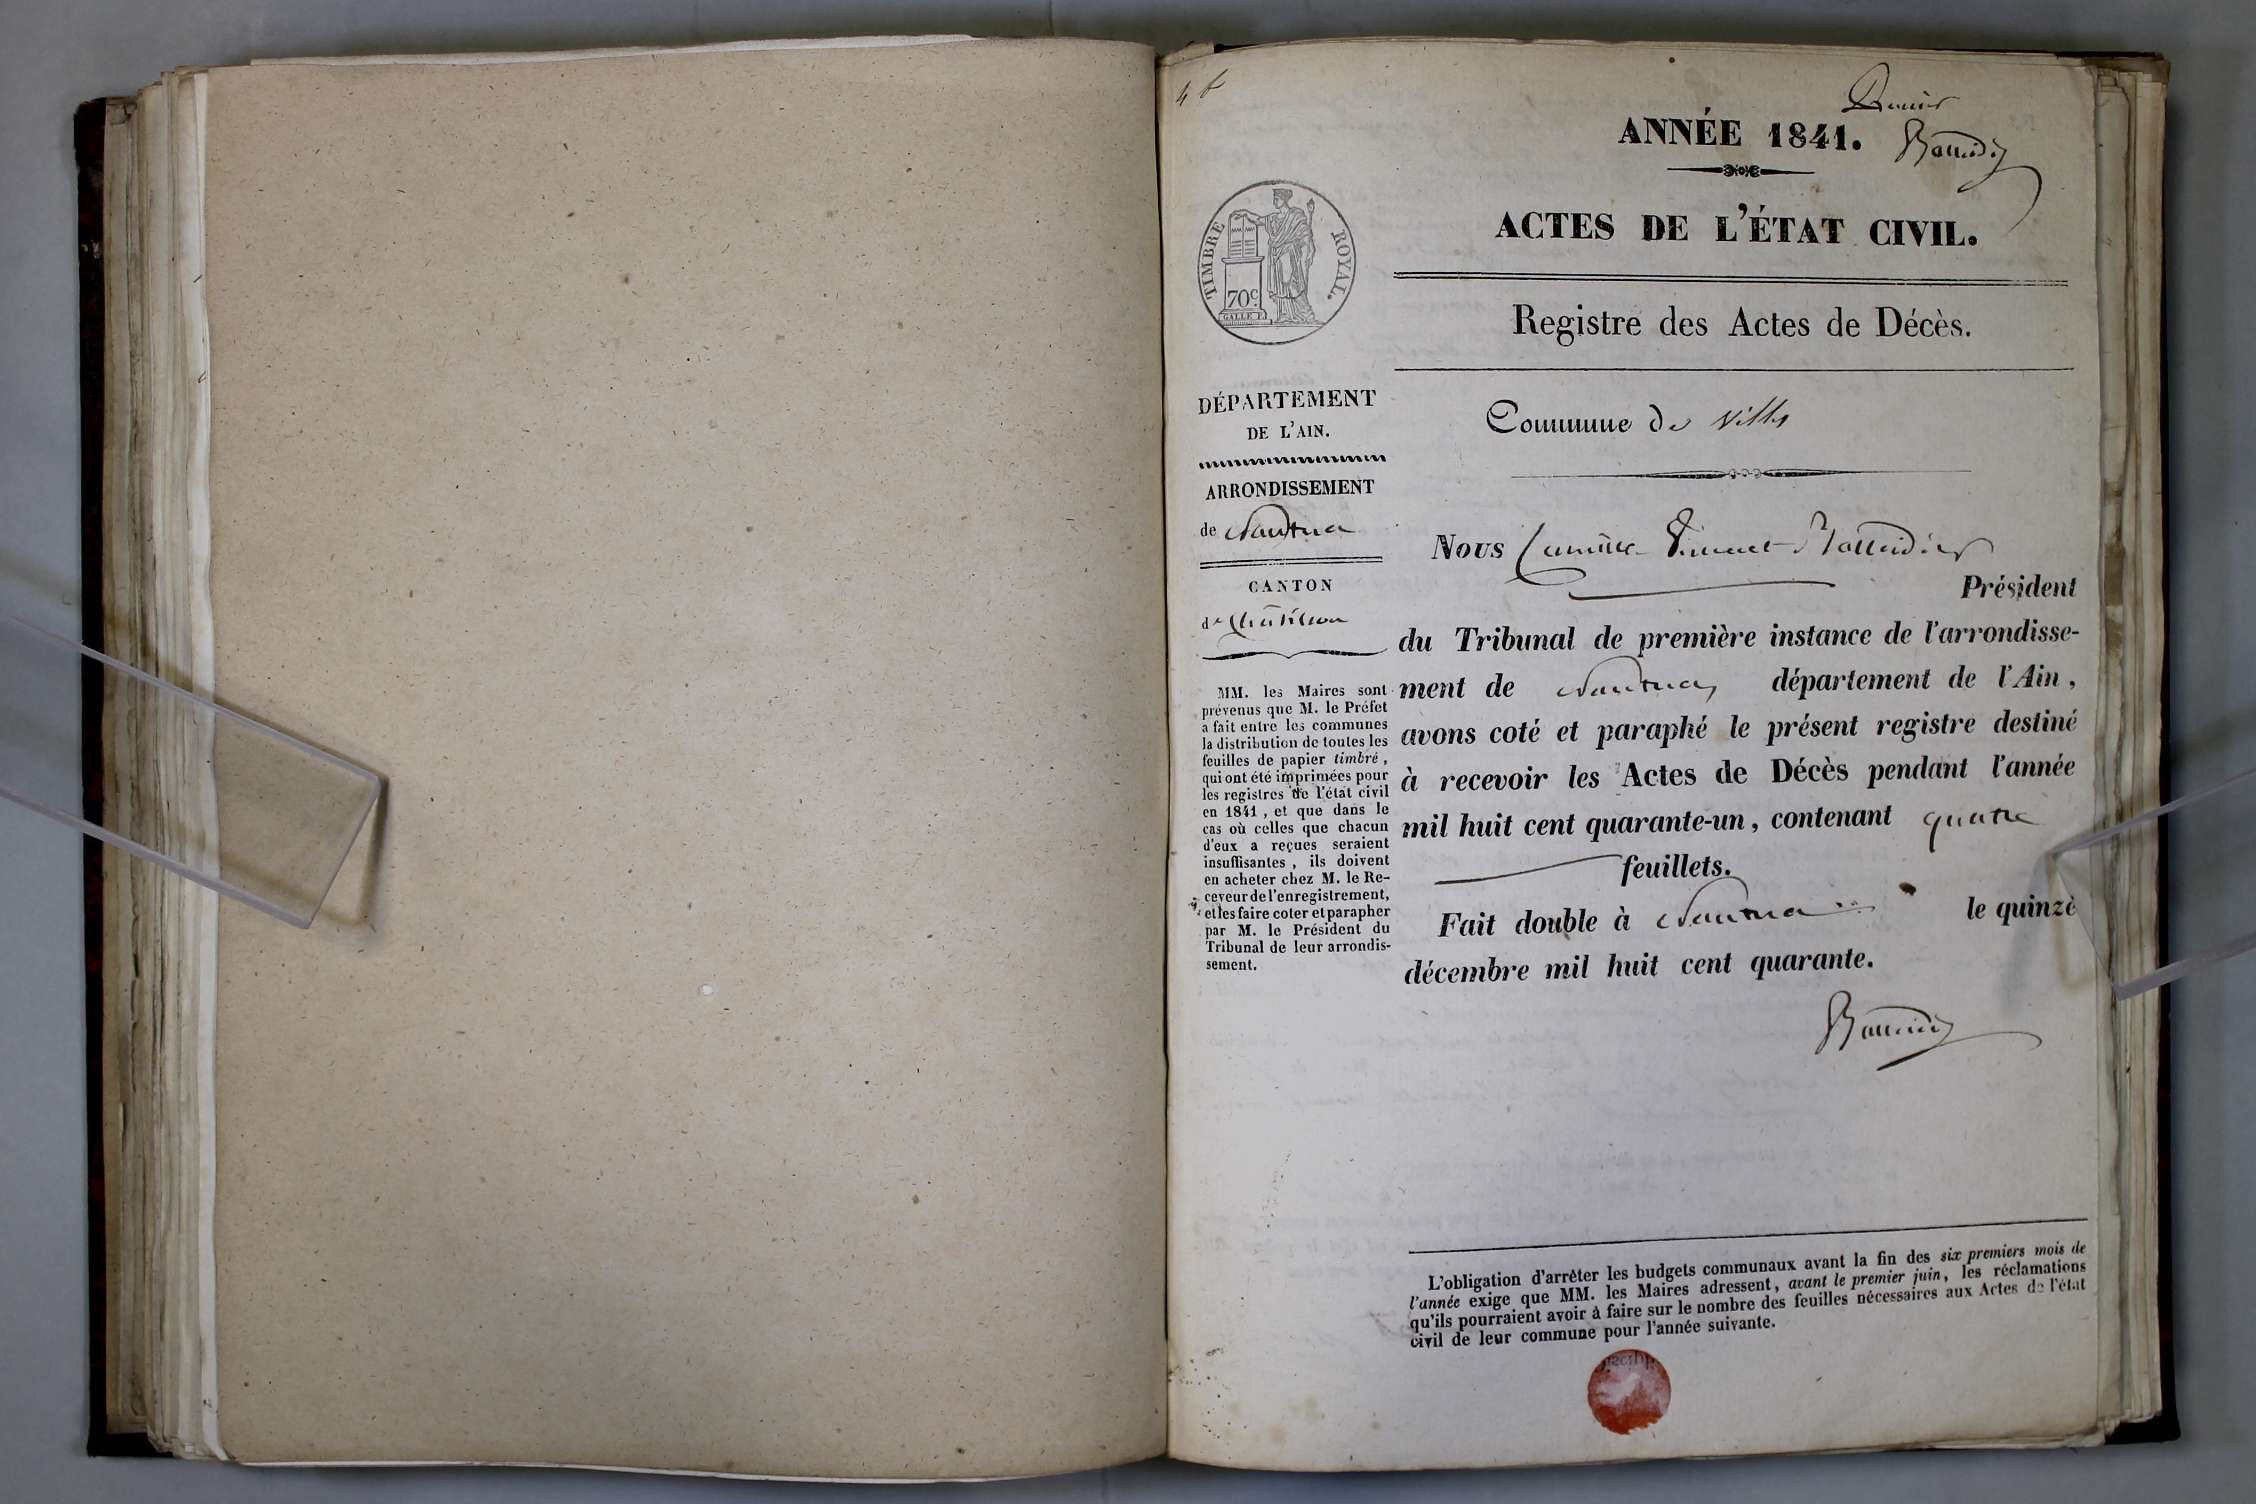 4 f
Premier
ANNÉE 1841.
ACTES DE L'ÉTAT CIVIL.
TIMBRE ROYAL.
70c.
Registre des Actes de Décès.
DÉPARTEMENT
DE L'AIN.
ARRONDISSEMENT
de Nantua
CANTON
de Châtillon
MM. les Maires sont
prévenus que M. le Préfet
a fait entre les communes
la distribution de toutes les
feuilles de papier timbré,
qui ont été imprimées pour
les registres de l'état civil
en 1841, et que dans le
cas où celles que chacun
d'eux a reçues seraient
insuffisantes, ils doivent
en acheter chez M. le Re-
ceveur de l'enregistrement,
et les faire coter et parapher
par M. le Président du
Tribunal de leur arrondis-
sement.
Commune de Villes
Nous Camille Vincent
Président
du Tribunal de première instance de l'arrondisse-
ment de Nantua, département de l'Ain,
avons coté et paraphé le présent registre destiné
à recevoir les Actes de Décès pendant l'année
mil huit cent quarante-un, contenant quatre
feuillets.
Fait double à Nantua le quinze
décembre mil huit cent quarante.
L'obligation d'arrêter les budgets communaux avant la fin des six premiers mois de
l'année exige que MM. les Maires adressent, avant le premier juin, les réclamations
qu'ils pourraient avoir à faire sur le nombre des feuilles nécessaires aux Actes de l'état
civil de leur commune pour l'année suivante.